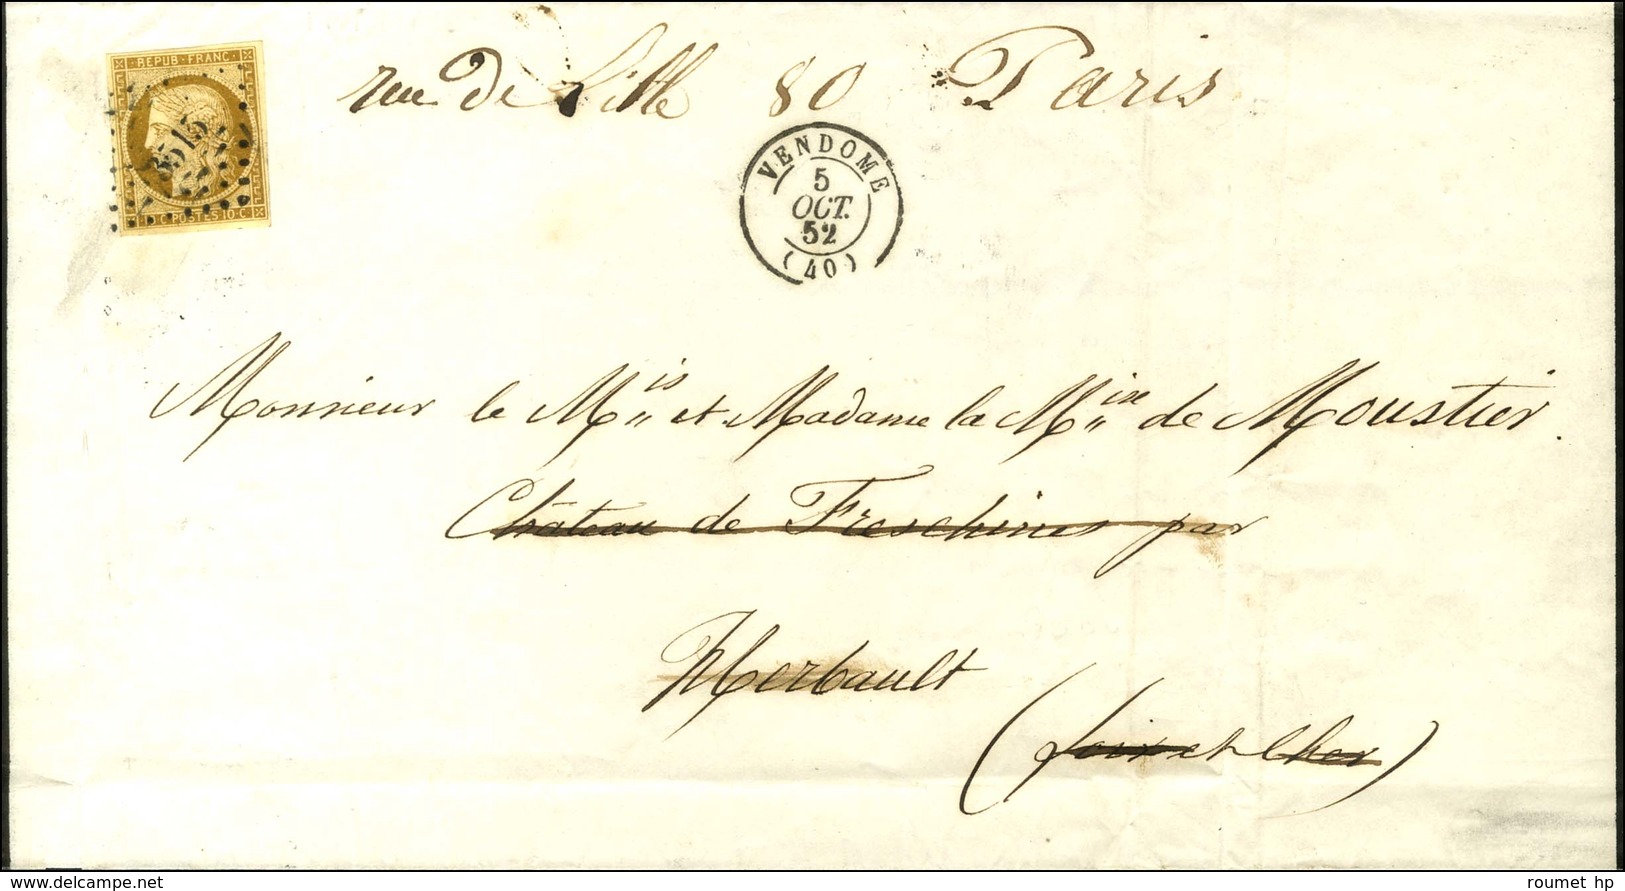 REPUB·FRANC·
3515
10·C·POSTES·10·C·
rue de Lille 80 Paris
VENDOME
5
OCT.
52
(40)
Monsieur le Mis et Madame la Mise de Moustier
Château de Freschines par
Herbault
(Loir et Cher)
delcampe.net
roumet_hp